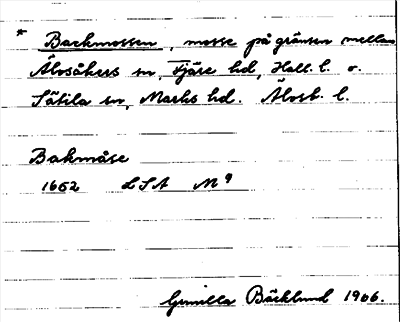 * Backmossen, mosse på gränsen mellan
Älvsåkers sn, Fjäre hd, Hall. l. o.
Sätila sn, Marks hd. Älvsb. l.
Bakmåse
1652 LSA M 9
Gunilla Bäcklund 1966.